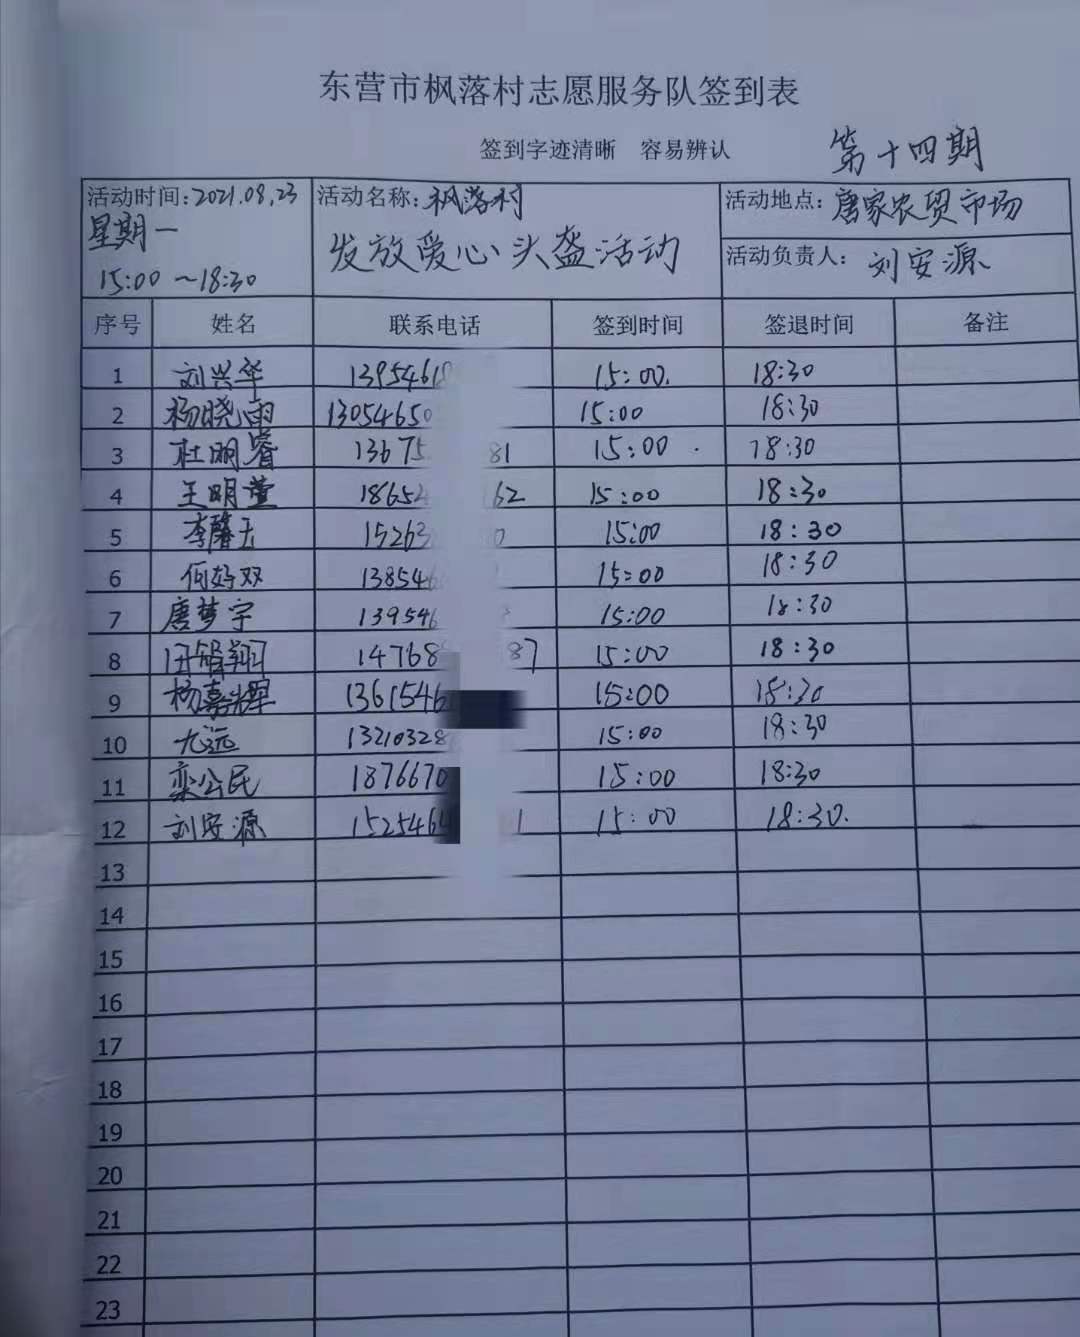 东营市枫落村志愿服务队签到表
签到字迹清晰 容易辨认 第十四期
活动时间:2021.08.23 星期一 15:00~18:30
活动名称:枫落村 发放爱心头盔活动
活动地点:唐家农贸市场
活动负责人:刘安源
序号 姓名 联系电话 签到时间 签退时间 备注
1 刘兴华 1395461 15:00. 18:30
2 杨晓雨 13054650 15:00 18:30
3 杜明睿 13675 81 15:00 18:30
4 王明萱 18652 62 15:00 18:30
5 李馨玉 15263 0 15:00 18:30
6 何好双 13854 15:00 18:30
7 唐梦宇 139546 15:00 18:30
8 14768 87 15:00 18:30
9 杨嘉辉 1361546 15:00 18:30
10 尤远 1321032 15:00 18:30
11 栾公民 1876670 15:00 18:30
12 刘安源 152546 1 15:00 18:30.
13
14
15
16
17
18
19
20
21
22
23